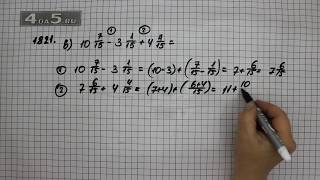 4 da 5.ru
① ②
1821. в) 10 7/15 − 3 1/15 + 4 4/15 =
① 10 7/15 − 3 1/15 = (10−3) + (7/15 − 1/15) = 7 + 6/15 = 7 6/15
② 7 6/15 + 4 4/15 = (7+4) + (6+4/15) = 11 + 10